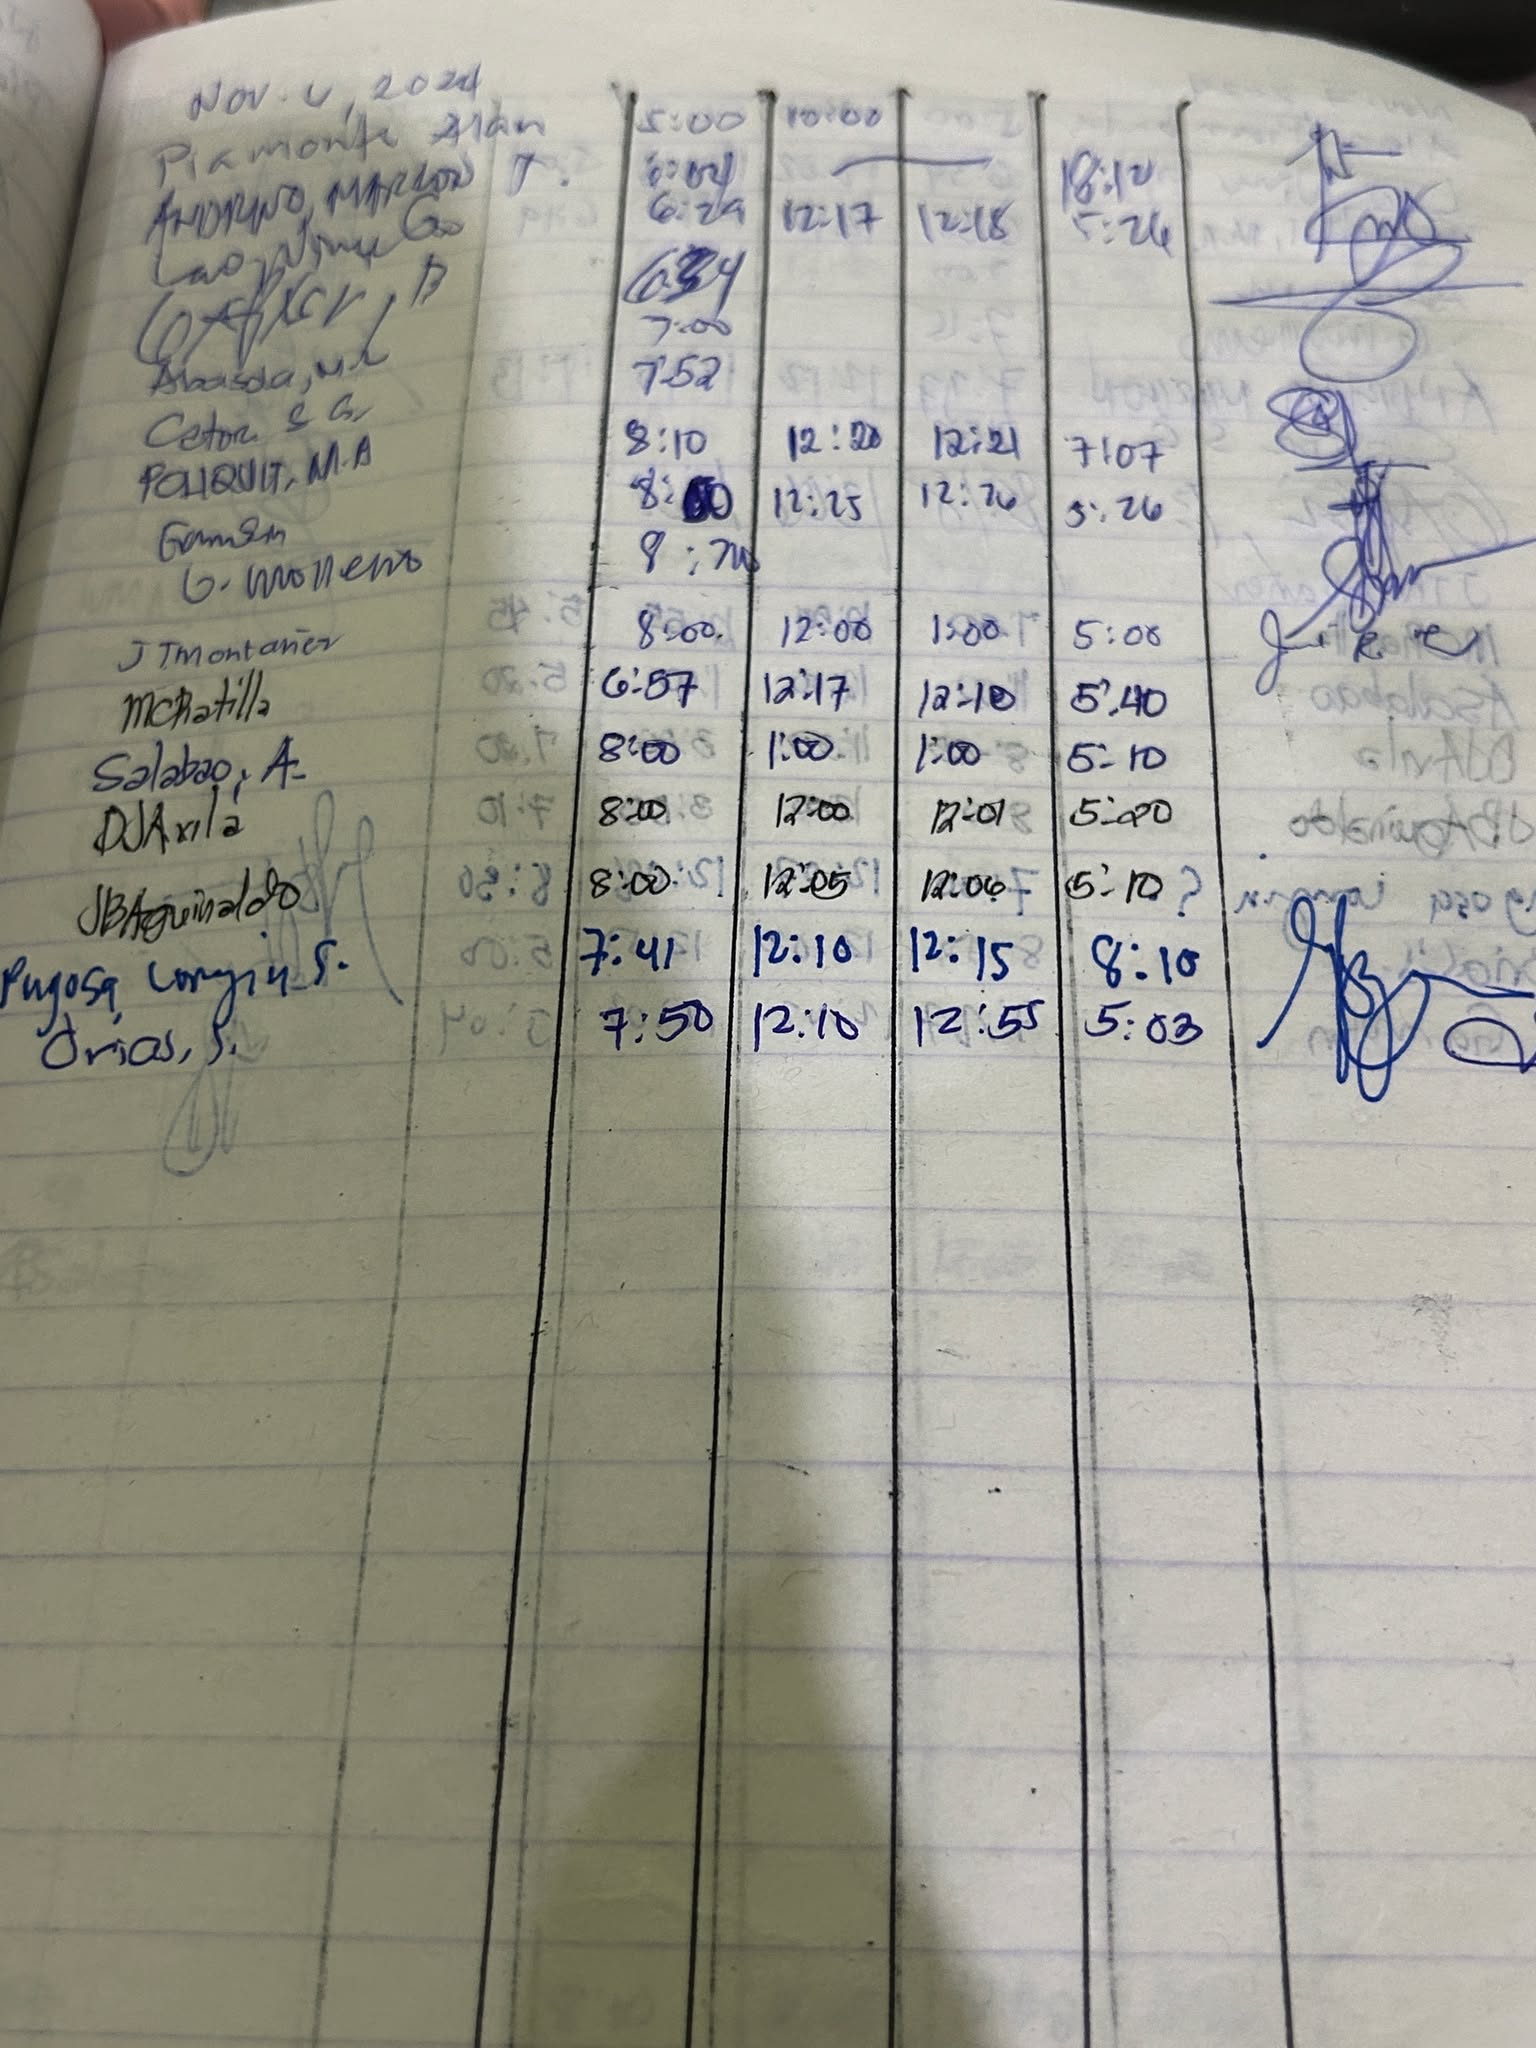 Nov. 6, 2024
Piamonte Alan 5:00 10:00
ANDRINO, MARLON T. 6:04 18:12
Lao, G. 6:29 12:17 12:18 5:26
B 6:34
7:00
Cetor S G. 7:52
POLIQUIT, M.A 8:10 12:20 12:21 7:07
8: 12:25 12:26 5:26
G. Morreno 8:
JTmontañer 8:00 12:00 1:00 5:00
MCRatilla 6:57 12:17 12:18 5:40
Salabao, A. 8:00 1:00 1:00 5:10
DJAvila 8:00 12:00 12:01 5:20
JBAguinaldo 8:00 12:05 12:06 5:10
Pugosa, Longin S. 7:41 12:10 12:15 8:10
Orias, S. 7:50 12:10 12:55 5:03